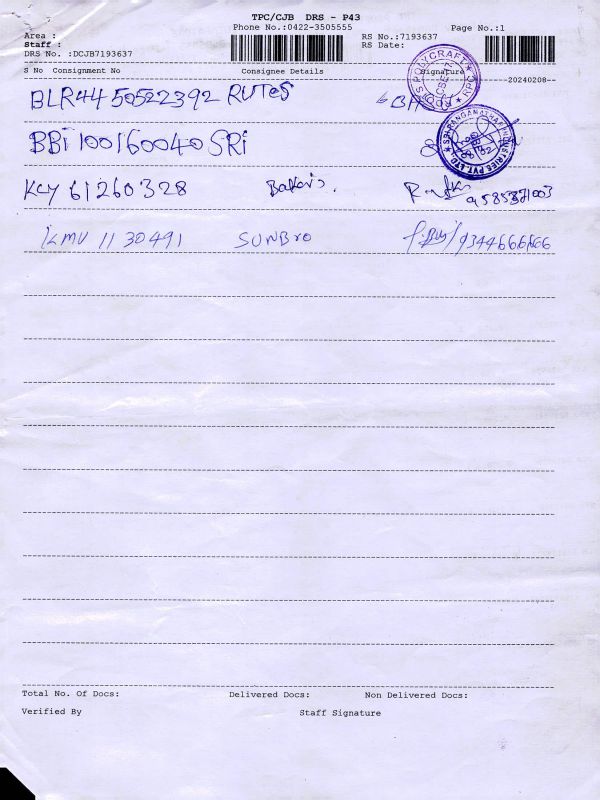 TPC/CJB DRS - P43
Phone No.:0422-3505555
Page No.:1
Area :
Staff :
DRS No. :DCJB7193637
RS No.:7193637
RS Date:
S No Consignment No Consignee Details Signature
20240208
BLR44 50522392 RUTeS
BBI 100160040 SRI
KCY 61260328 Baker's. 9585371003
KMU 1130491 SUNBro 9344666666
Total No. Of Docs: Delivered Docs: Non Delivered Docs:
Verified By Staff Signature